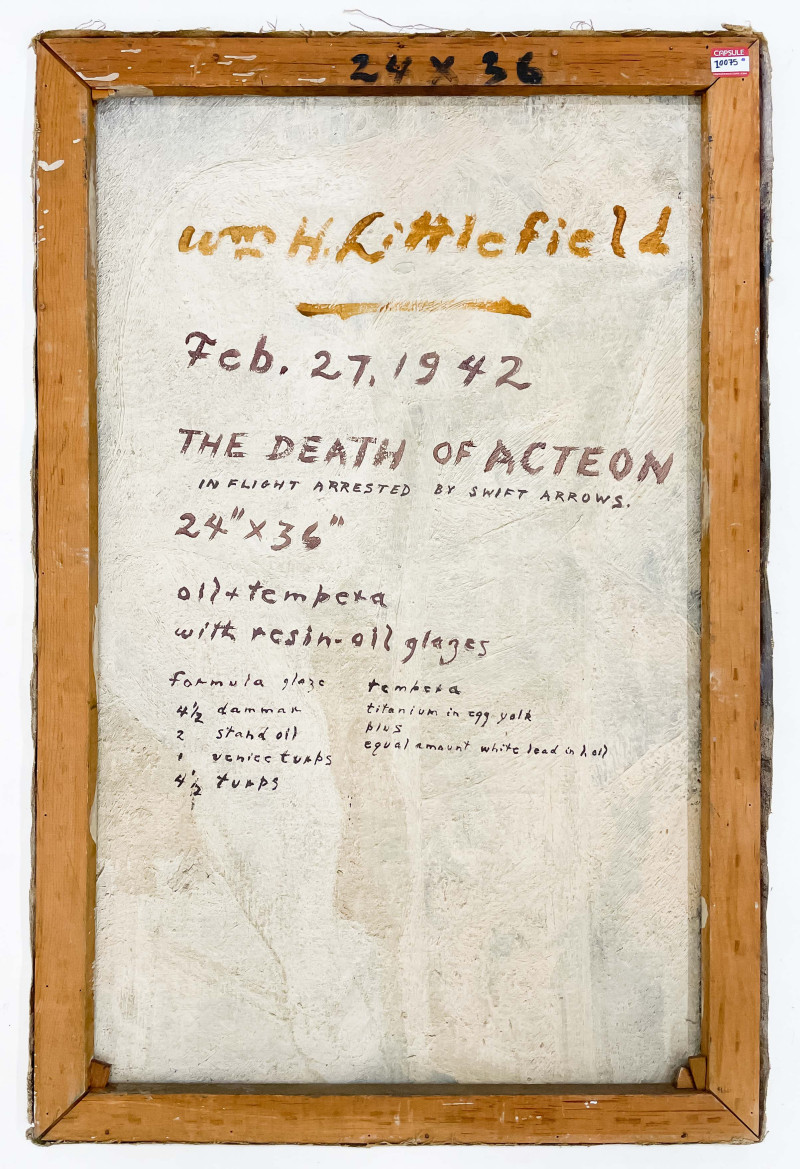 24 X 36
CAPSULE
10075
Wm H. Littlefield
Feb. 27, 1942
THE DEATH OF ACTEON
IN FLIGHT ARRESTED BY SWIFT ARROWS.
24" X 36"
oil + tempera
with resin-oil glazes
formula glaze
4½ dammar
2 stand oil
1 venice turps
4½ turps
tempera
titanium in egg yolk
plus
equal amount white lead in l. oil